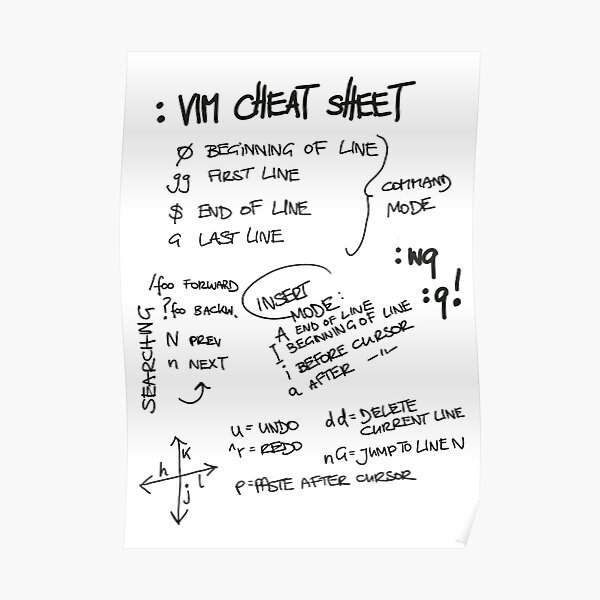 : VIM CHEAT SHEET
0 BEGINNING OF LINE
gg FIRST LINE
$ END OF LINE
G LAST LINE
COMMAND
MODE
:wq
:q!
/foo FORWARD
?foo BACKW.
N PREV
n NEXT
SEARCHING
INSERT
MODE:
A END OF LINE
I BEGINNING OF LINE
i BEFORE CURSOR
a AFTER -"-
u = UNDO
^r = REDO
p = PASTE AFTER CURSOR
dd = DELETE
CURRENT LINE
nG = JUMP TO LINE N
k
h
l
j